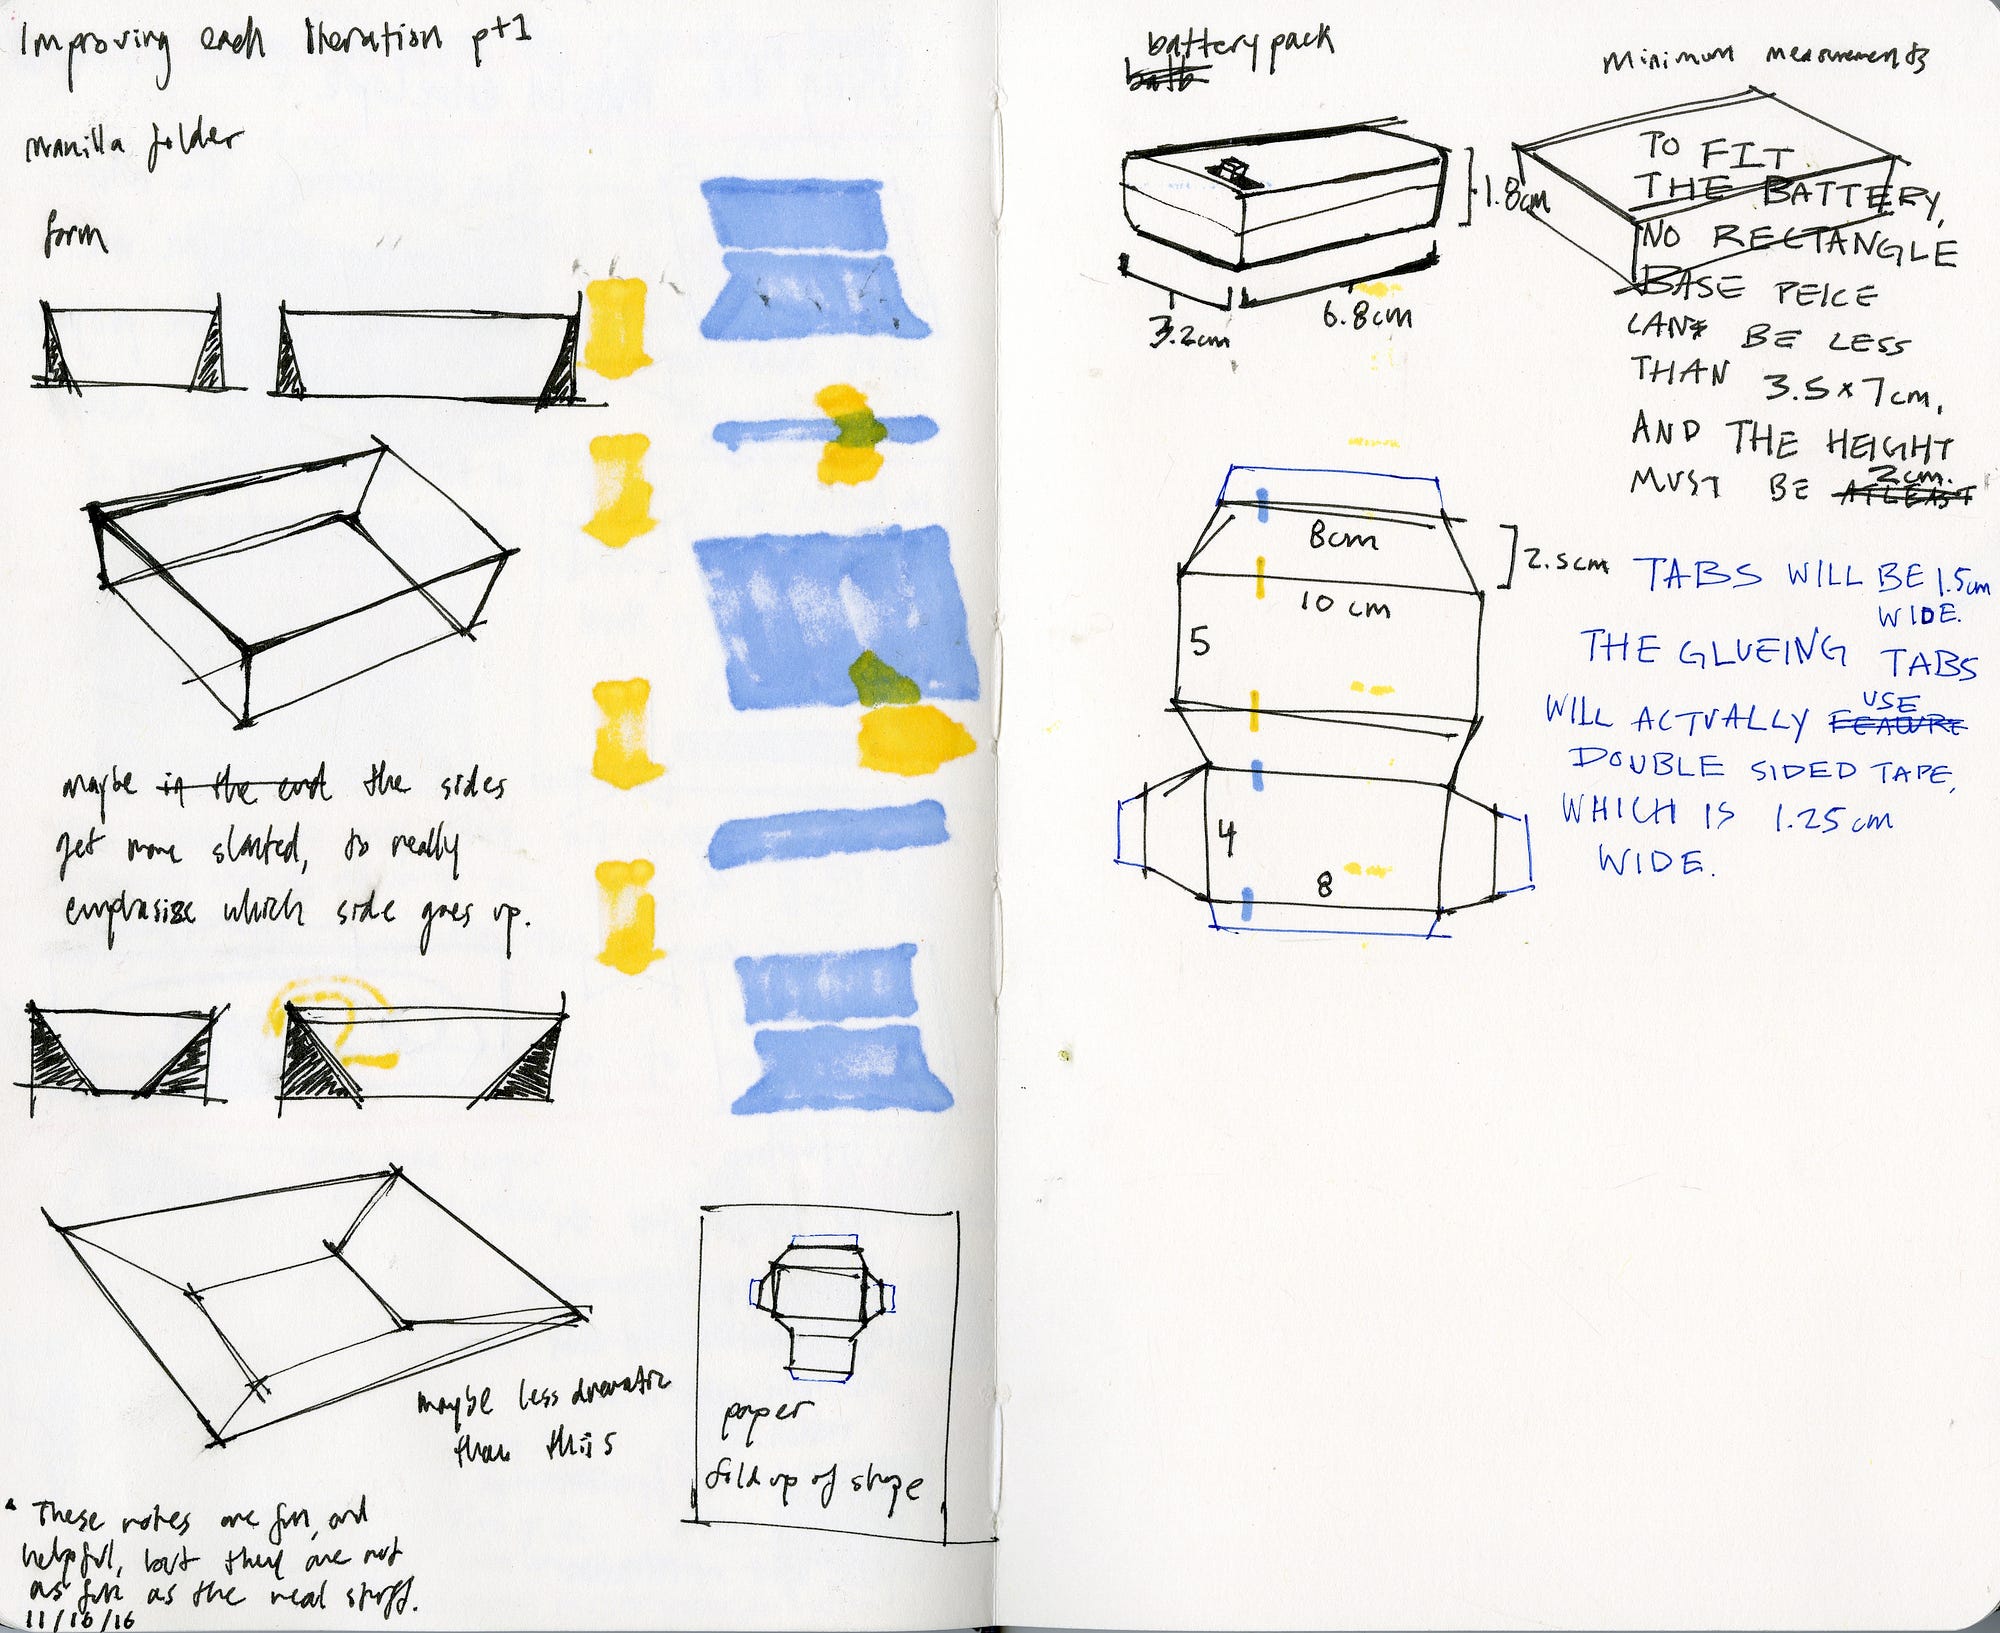 Improving each Iteration pt1
manilla folder
form
maybe in the end the sides
get more slanted, to really
emphasize which side goes up.
maybe less dramatic
than this
paper
fold up of shape
* These notes are fun, and
helpful, but they are not
as fun as the real stuff.
11/16/16
battery pack
batb
1.8cm
3.2cm
6.8cm
Minimum measurements
TO FIT
THE BATTERY,
NO RECTANGLE
BASE PEICE
CAN BE LESS
THAN 3.5 x 7cm,
AND THE HEIGHT
MUST BE ATLEAST 2cm.
8cm
2.5cm
10 cm
5
4
8
TABS WILL BE 1.5cm
WIDE.
THE GLUEING TABS
WILL ACTUALLY FEATURE USE
DOUBLE SIDED TAPE,
WHICH IS 1.25cm
WIDE.